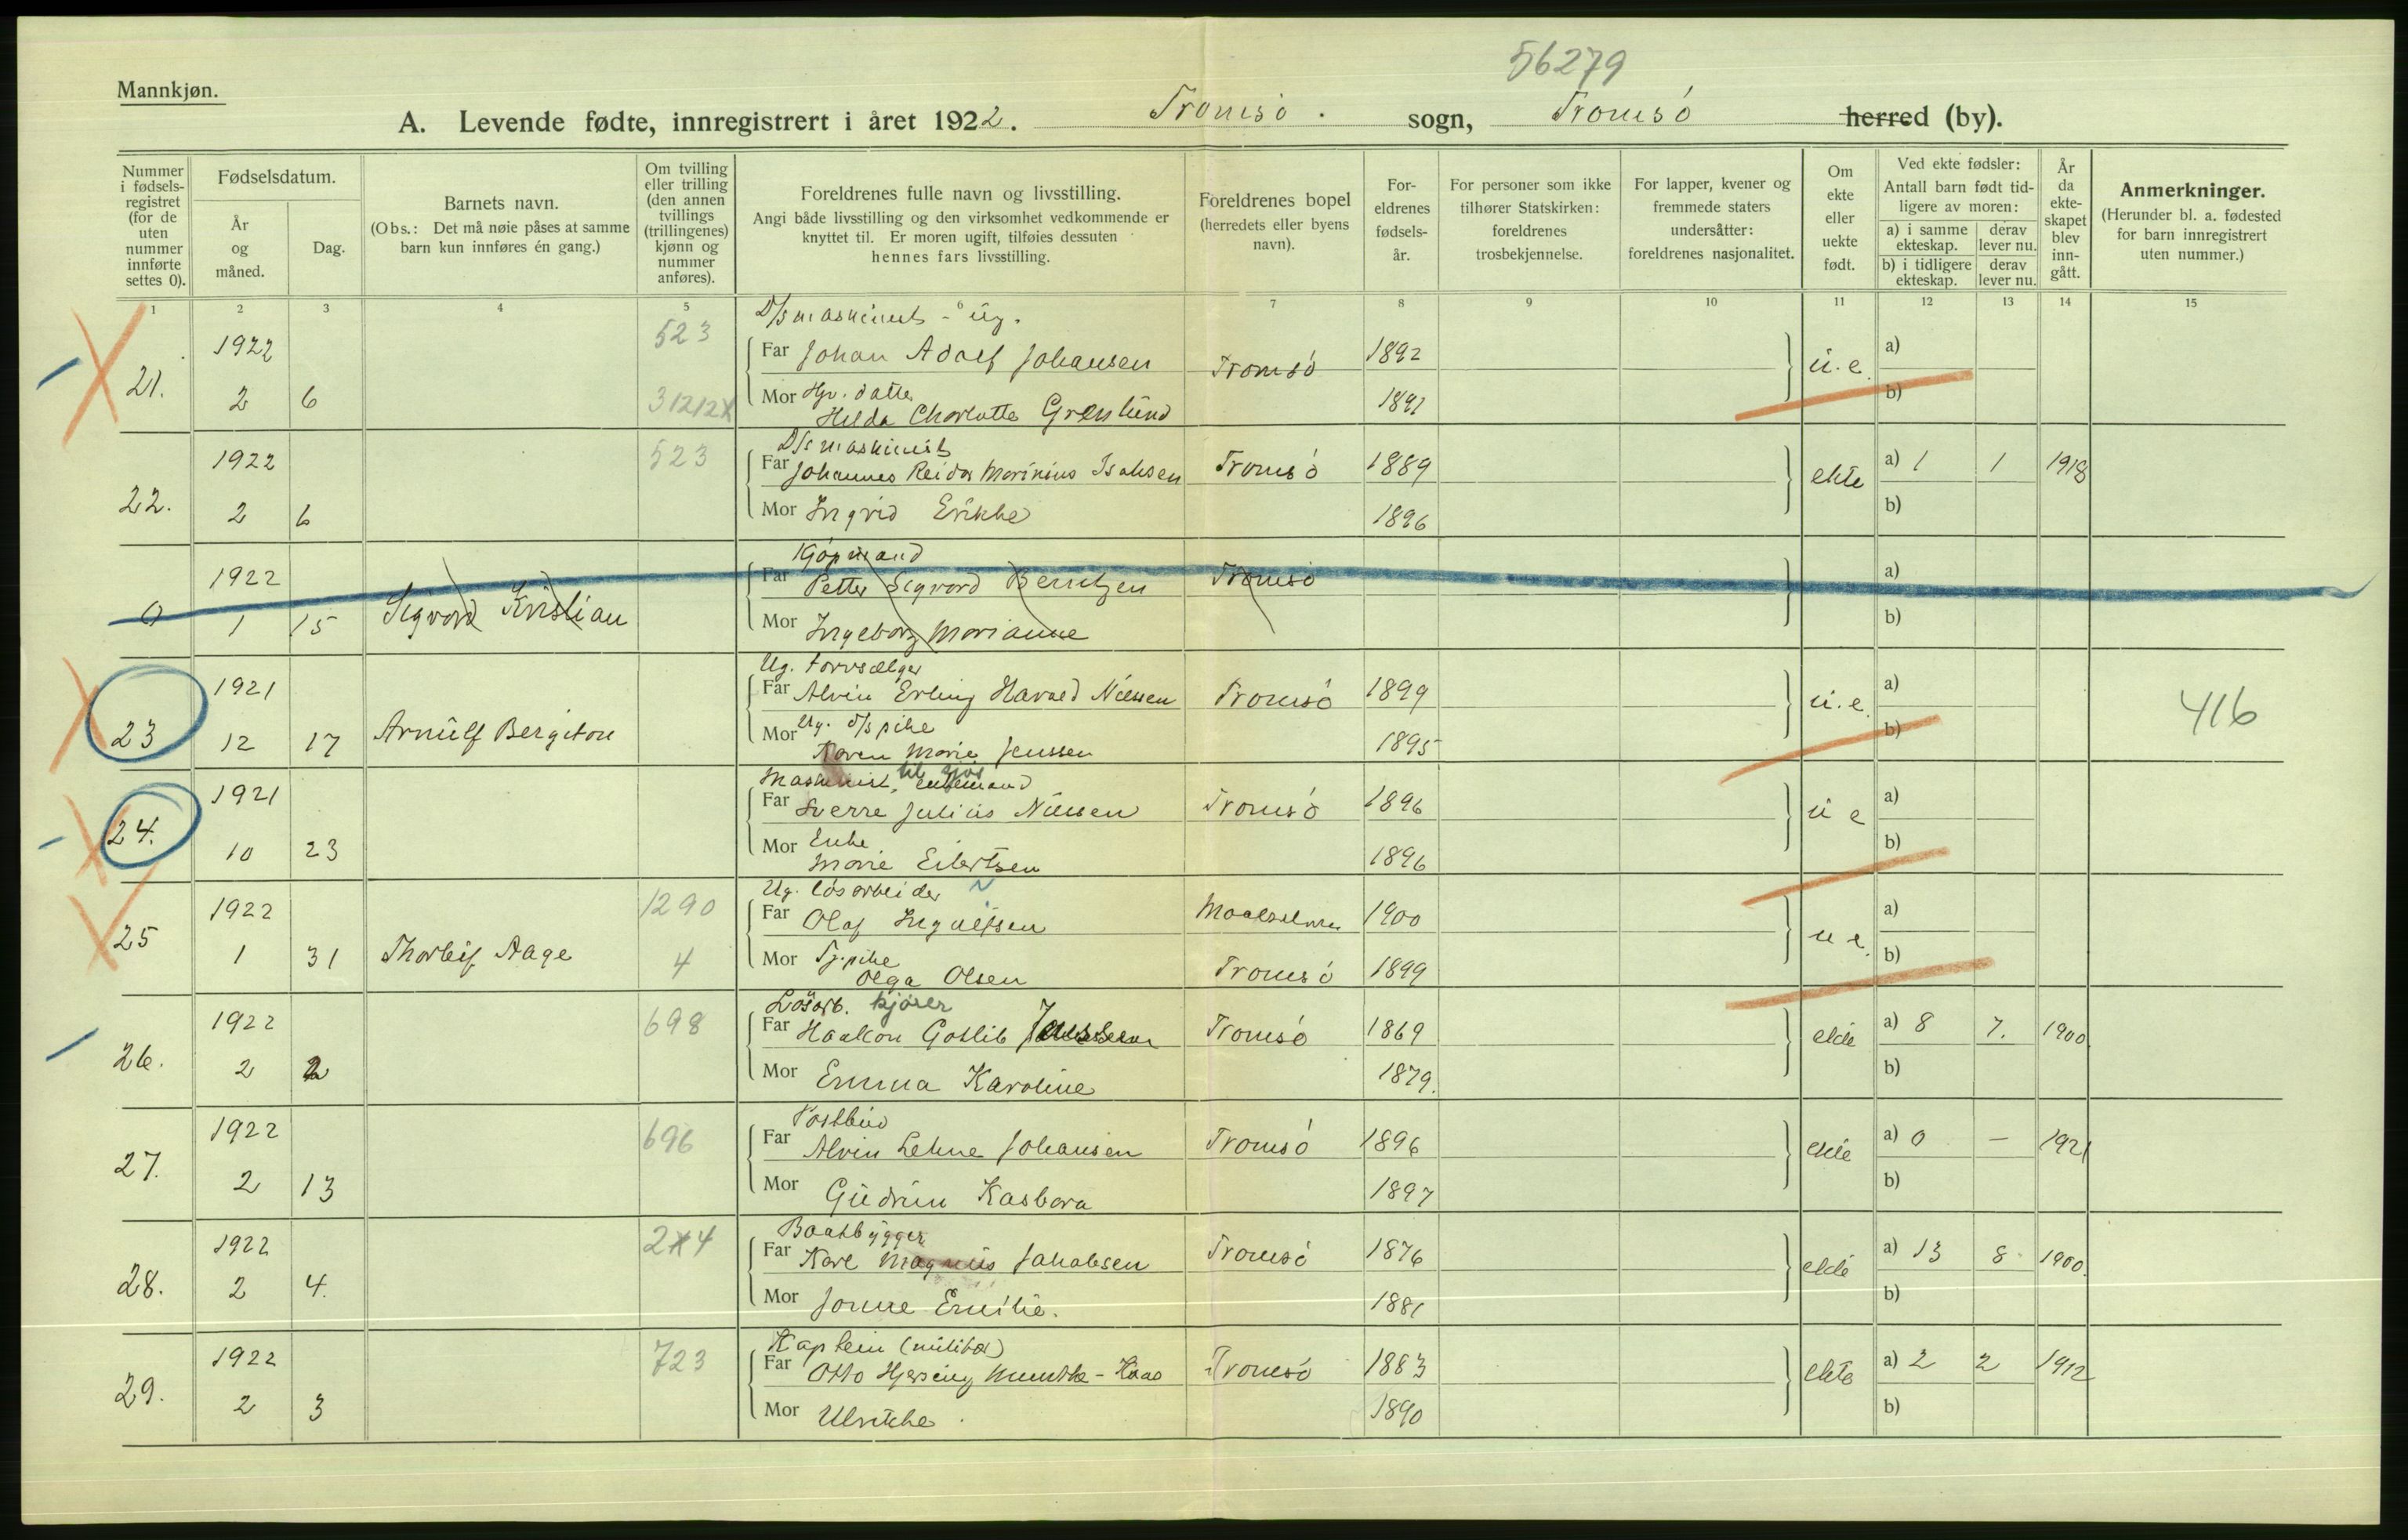 56279
Mannkjøn.
A. Levende fødte, innregistrert i året 1922. Tromsø. sogn, Tromsø herred (by).
Nummer i fødsels-registret (for de uten nummer innførte settes 0).
Fødselsdatum.
År og måned.
Dag.
Barnets navn.
(Obs.: Det må nøie påses at samme barn kun innføres én gang.)
Om tvilling eller trilling (den annen tvillings (trillingenes) kjønn og nummer anføres).
Foreldrenes fulle navn og livsstilling.
Angi både livsstilling og den virksomhet vedkommende er knyttet til. Er moren ugift, tilføies dessuten hennes fars livsstilling.
Foreldrenes bopel (herredets eller byens navn).
For-eldrenes fødsels-år.
For personer som ikke tilhører Statskirken: foreldrenes trosbekjennelse.
For lapper, kvener og fremmede staters undersåtter: foreldrenes nasjonalitet.
Om ekte eller uekte født.
Ved ekte fødsler:
Antall barn født tid-ligere av moren:
a) i samme ekteskap. derav lever nu.
b) i tidligere ekteskap. derav lever nu.
År da ekte-skapet blev inn-gått.
Anmerkninger.
(Herunder bl. a. fødested for barn innregistrert uten nummer.)
1 2 3 4 5 6 7 8 9 10 11 12 13 14 15
D/s maskinist - ug.
21. 1922 523 Far Johan Adolf Johansen Tromsø 1892 u.e. a)
2 6 Mor Hjv. datter
Hilda Charlotte Grønlund 1891 b)
D/s maskinist
22. 1922 523 Far Johannes Reidar Marinius Isaksen Tromsø 1889 ekte a) 1 1 1918
2 6 Mor Ingrid Erikke 1896 b)
Kjøpmand
0 1922 Sigvard Kristian Far Petter Sigvard Berntzen Tromsø a)
1 15 Mor Ingeborg Marianne b)
Ug. torvsælger
23 1921 Arnulf Bergiton Far Alvin Erling Harald Nilssen Tromsø 1899 u.e. a) 416
12 17 Mor Ug. d/s pike
Karen Marie Jenssen 1895 b)
Maskinist, til sjøs enkemand
24. 1921 Far Sverre Julius Nilssen Tromsø 1896 u e a)
10 23 Mor Enke
Marie Eilertsen 1896 b)
Ug. løsarbeider
25 1922 1290 Far Olaf Ingulfsen Maalselven 1900 u e. a)
1 31 Thorleif Aage 4 Mor Tj.pike
Olga Olsen Tromsø 1899 b)
Løsarb. kjører
26. 1922 698 Far Haakon Gotlib Janssen Tromsø 1869 ekte a) 8 7. 1900
2 2 Mor Emma Karoline 1879. b)
Postbud
27. 1922 696 Far Alvin Lehne Johansen Tromsø 1896 ekte a) 0 — 1921
2 13 Mor Gudrun Kasbara 1897 b)
Baatbygger
28. 1922 2x4 Far Karl Magnus Jakobsen Tromsø 1876 ekte a) 13 8 1900.
2 4. Mor Jonne Emilie. 1881 b)
Kaptein (militær)
29. 1922 723 Far Otto Hjersing Munthe-Kaas Tromsø 1883 ekte a) 2 2 1912
2 3 Mor Ulrikke. 1890 b)